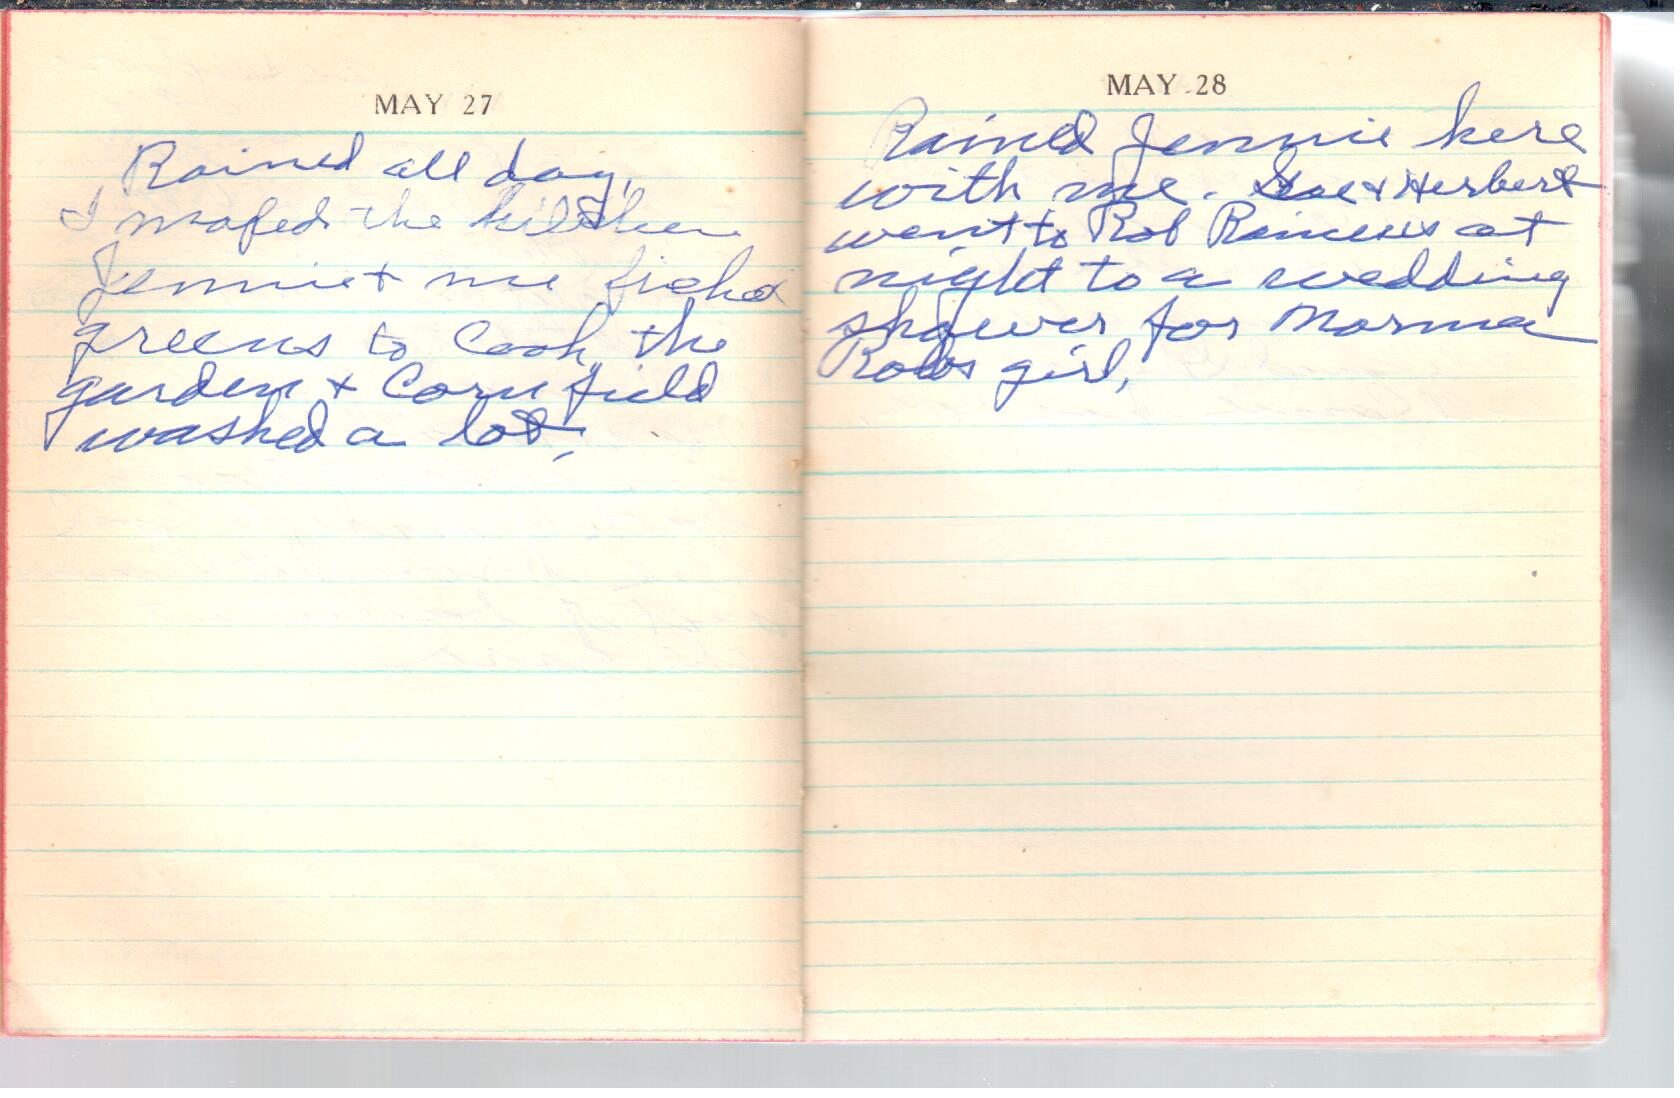 MAY 27
Rained all day,
I mofed the kitchen
Jennie + me
greens to Cook, the
garden + Corn field
washed a lot,
MAY 28
Rained Jennie here
with me. + Herbert
went to Rob at
night to a wedding
shower for Norma
Robs girl,